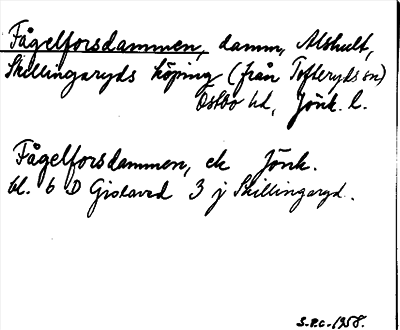 Fågelforsdammen, damm, Alshult,
Skillingaryds köping (från Tofteryds sn)
Östbo hd, Jönk. l.
Fågelforsdammen, ek Jönk.
bl. 6 D Gislaved 3 j Skillingaryd.
S.P.C. 1958.